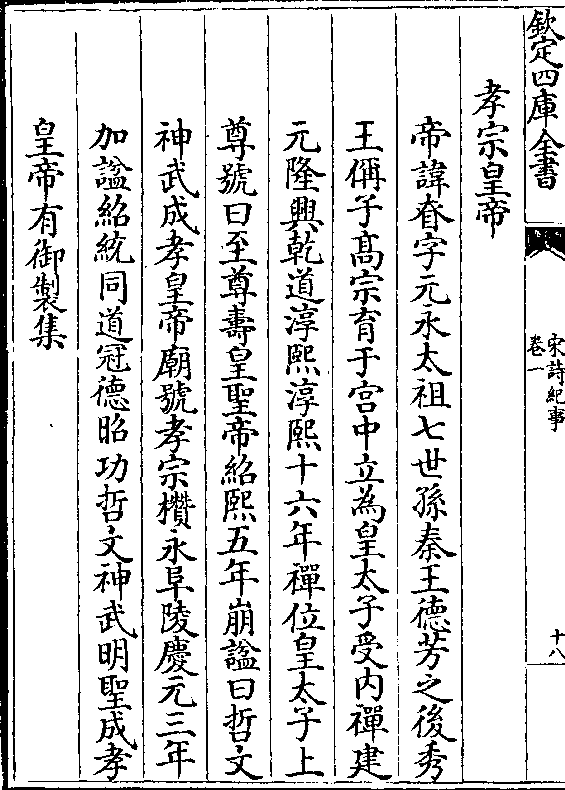 欽定四庫全書
宋詩紀事
卷一
十八
孝宗皇帝
帝諱昚字元永太祖七世孫秦王德芳之後秀
王偁子髙宗育于宫中立為皇太子受内禪建
元隆興乾道淳熙淳熙十六年禪位皇太子上
尊號曰至尊壽皇聖帝紹熙五年崩諡曰哲文
神武成孝皇帝廟號孝宗欑永阜陵慶元三年
加諡紹統同道冠德昭功哲文神武明聖成孝
皇帝有御製集